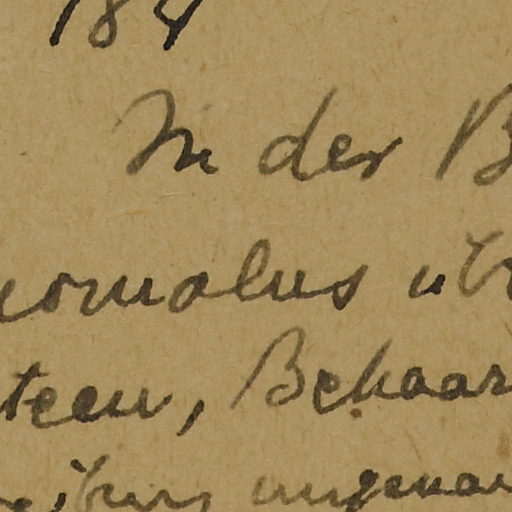 184
In der B
nomalus üb
teen, Behaar
eibung ungenau